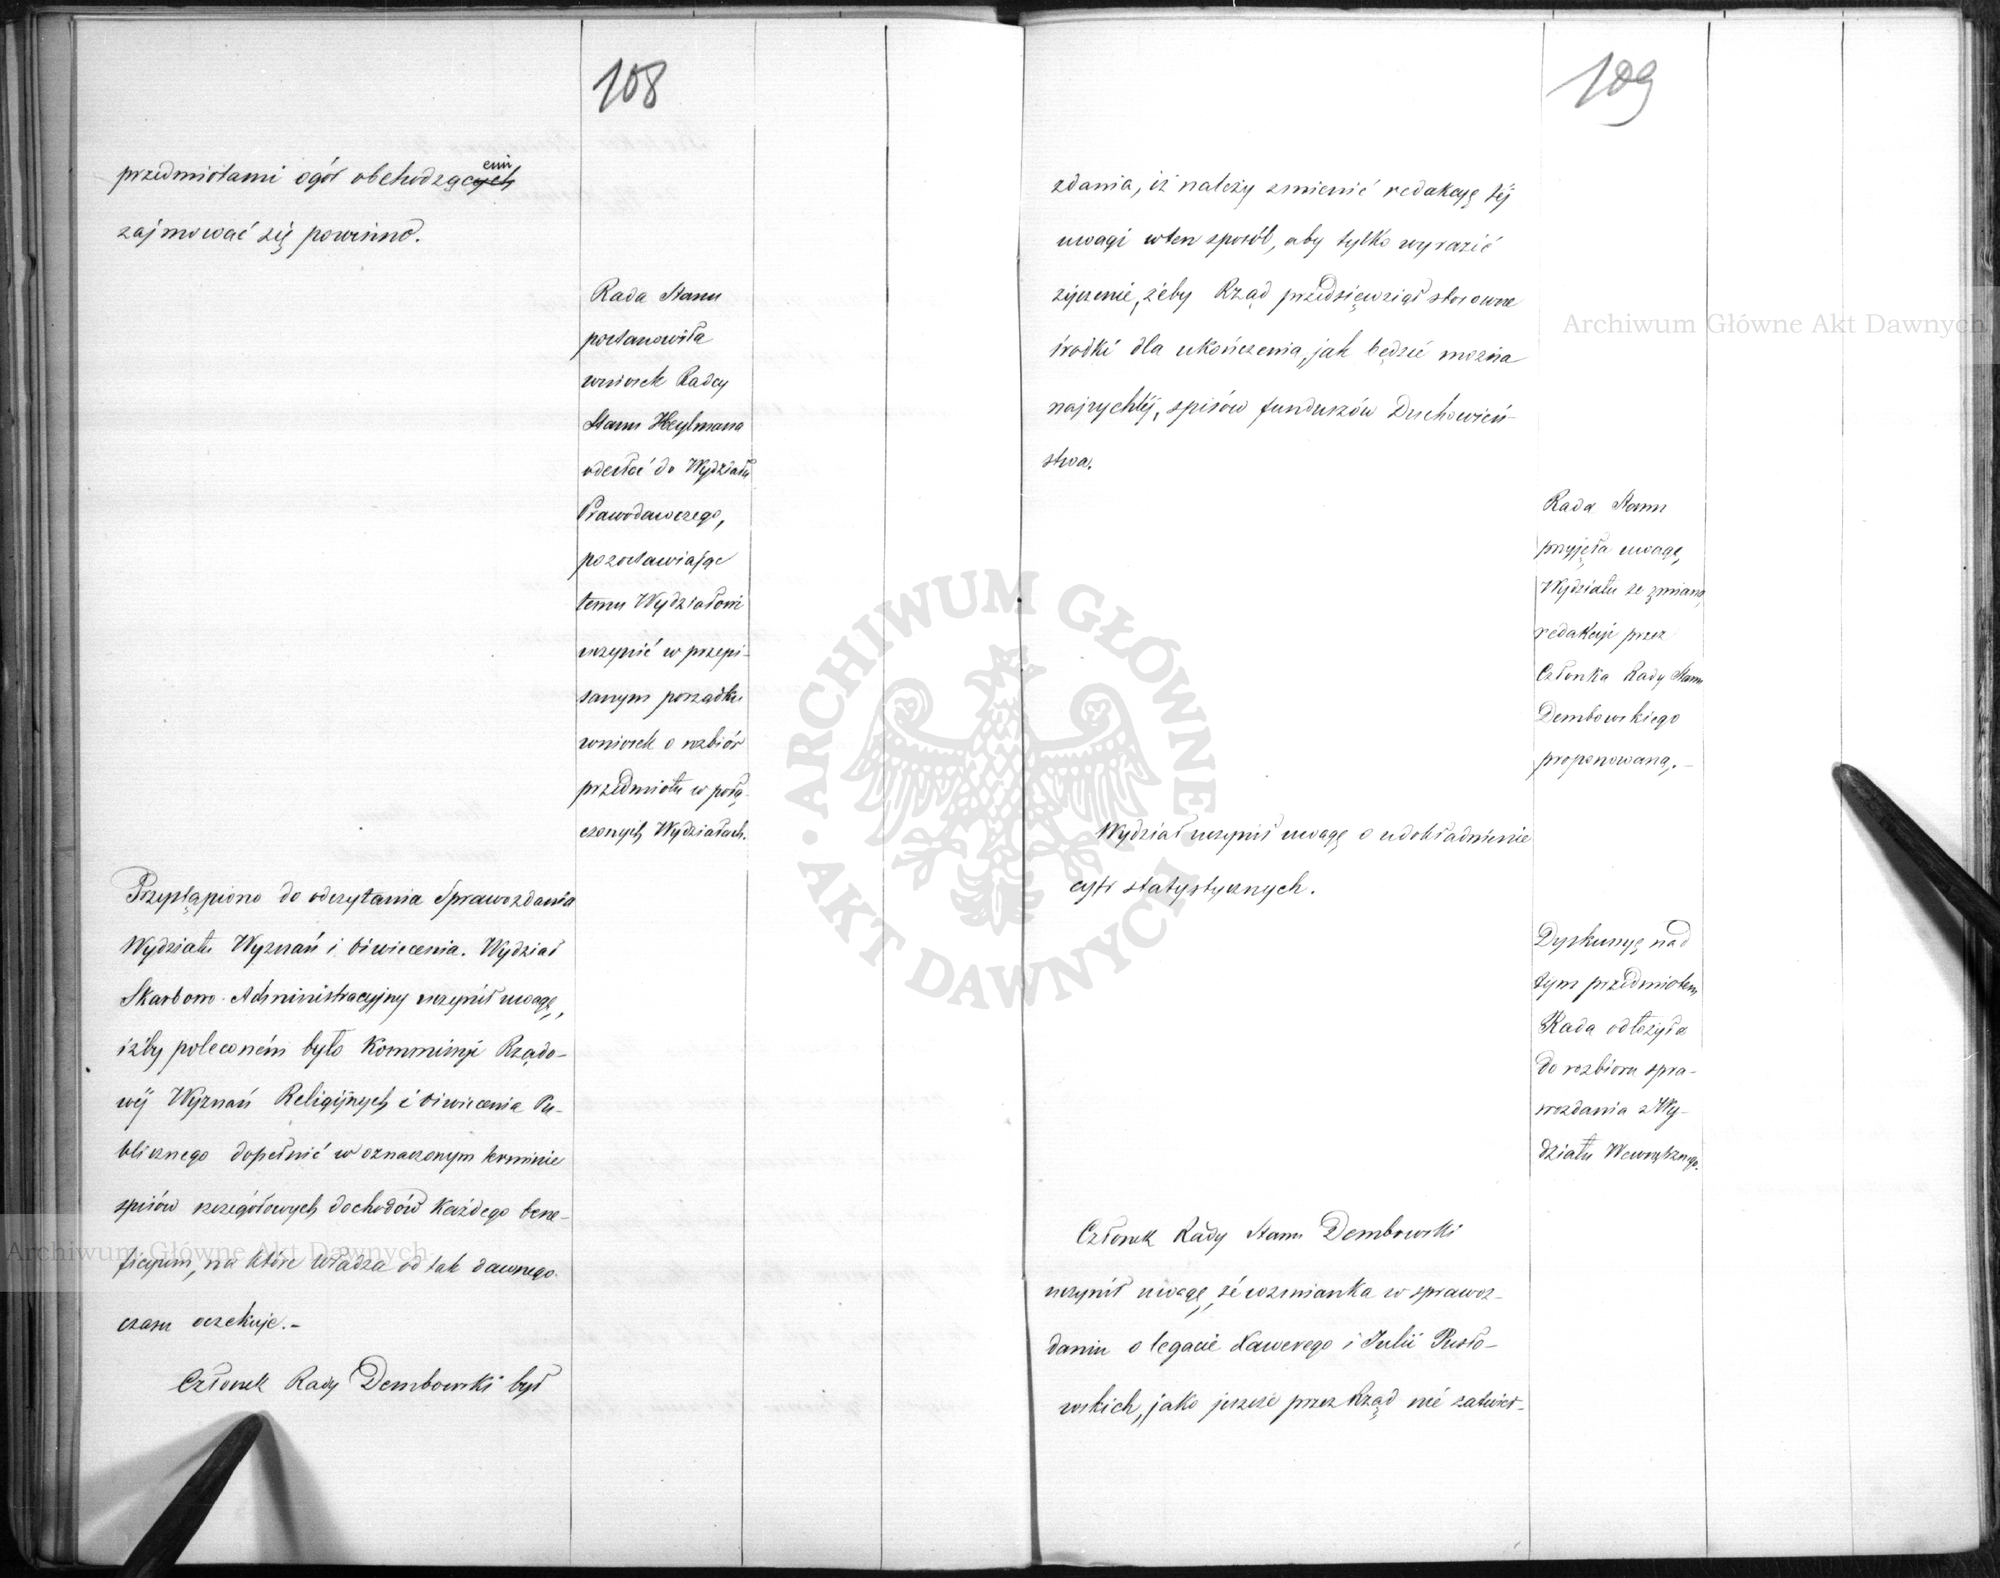 108
przedmiotami ogół obchodzącemi
zajmować się powinno.
Rada Stanu
postanowiła
wniosek Radcy
Stanu Heylmana
odesłać do Wydziału
Prawodawczego,
pozostawiając
temu Wydziałowi
uczynić w przepi-
sanym porządku
wniosek o rozbiór
przedmiotu w połą-
czonych Wydziałach.
Przystąpiono do odczytania Sprawozdania
Wydziału Wyznań i Oświecenia. Wydział
Skarbowo-Administracyjny uczynił uwagę,
iżby poleconém było Kommissyi Rządo-
wéj Wyznań Religijnych i Oświecenia Pu-
blicznego dopełnić w oznaczonym terminie
spisów szczegółowych dochodów każdego bene-
ficyum, na które Władza od tak dawnego
czasu oczekuje.-
Członek Rady Dembowski był
109
zdania, iż należy zmienić redakcyę téj
uwagi w ten sposób, aby tylko wyrazić
życzenie, żeby Rząd przedsięwziął stosowne
środki dla ukończenia, jak będzie można
najrychléj, spisów funduszów Duchowień-
stwa.
Rada Stanu
przyjęła uwagę
Wydziału ze zmianą
redakcyi przez
Członka Rady Stanu
Dembowskiego
proponowaną.-
Wydział uczynił uwagę o udokładnienie
cyfr statystycznych.
Dyskussyę nad
tym przedmiotem
Rada odłożyła
do rozbioru spra-
wozdania z Wy-
działu Wewnętrznego.
Członek Rady Stanu Dembowski
uczynił uwagę, że wzmianka w sprawoz-
daniu o legacie Xawerego i Julii Pusło-
wskich, jako jeszcze przez Rząd nie zatwier-
Archiwum Główne Akt Dawnych
Archiwum Główne Akt Dawnych
ARCHIWUM GŁÓWNE AKT DAWNYCH